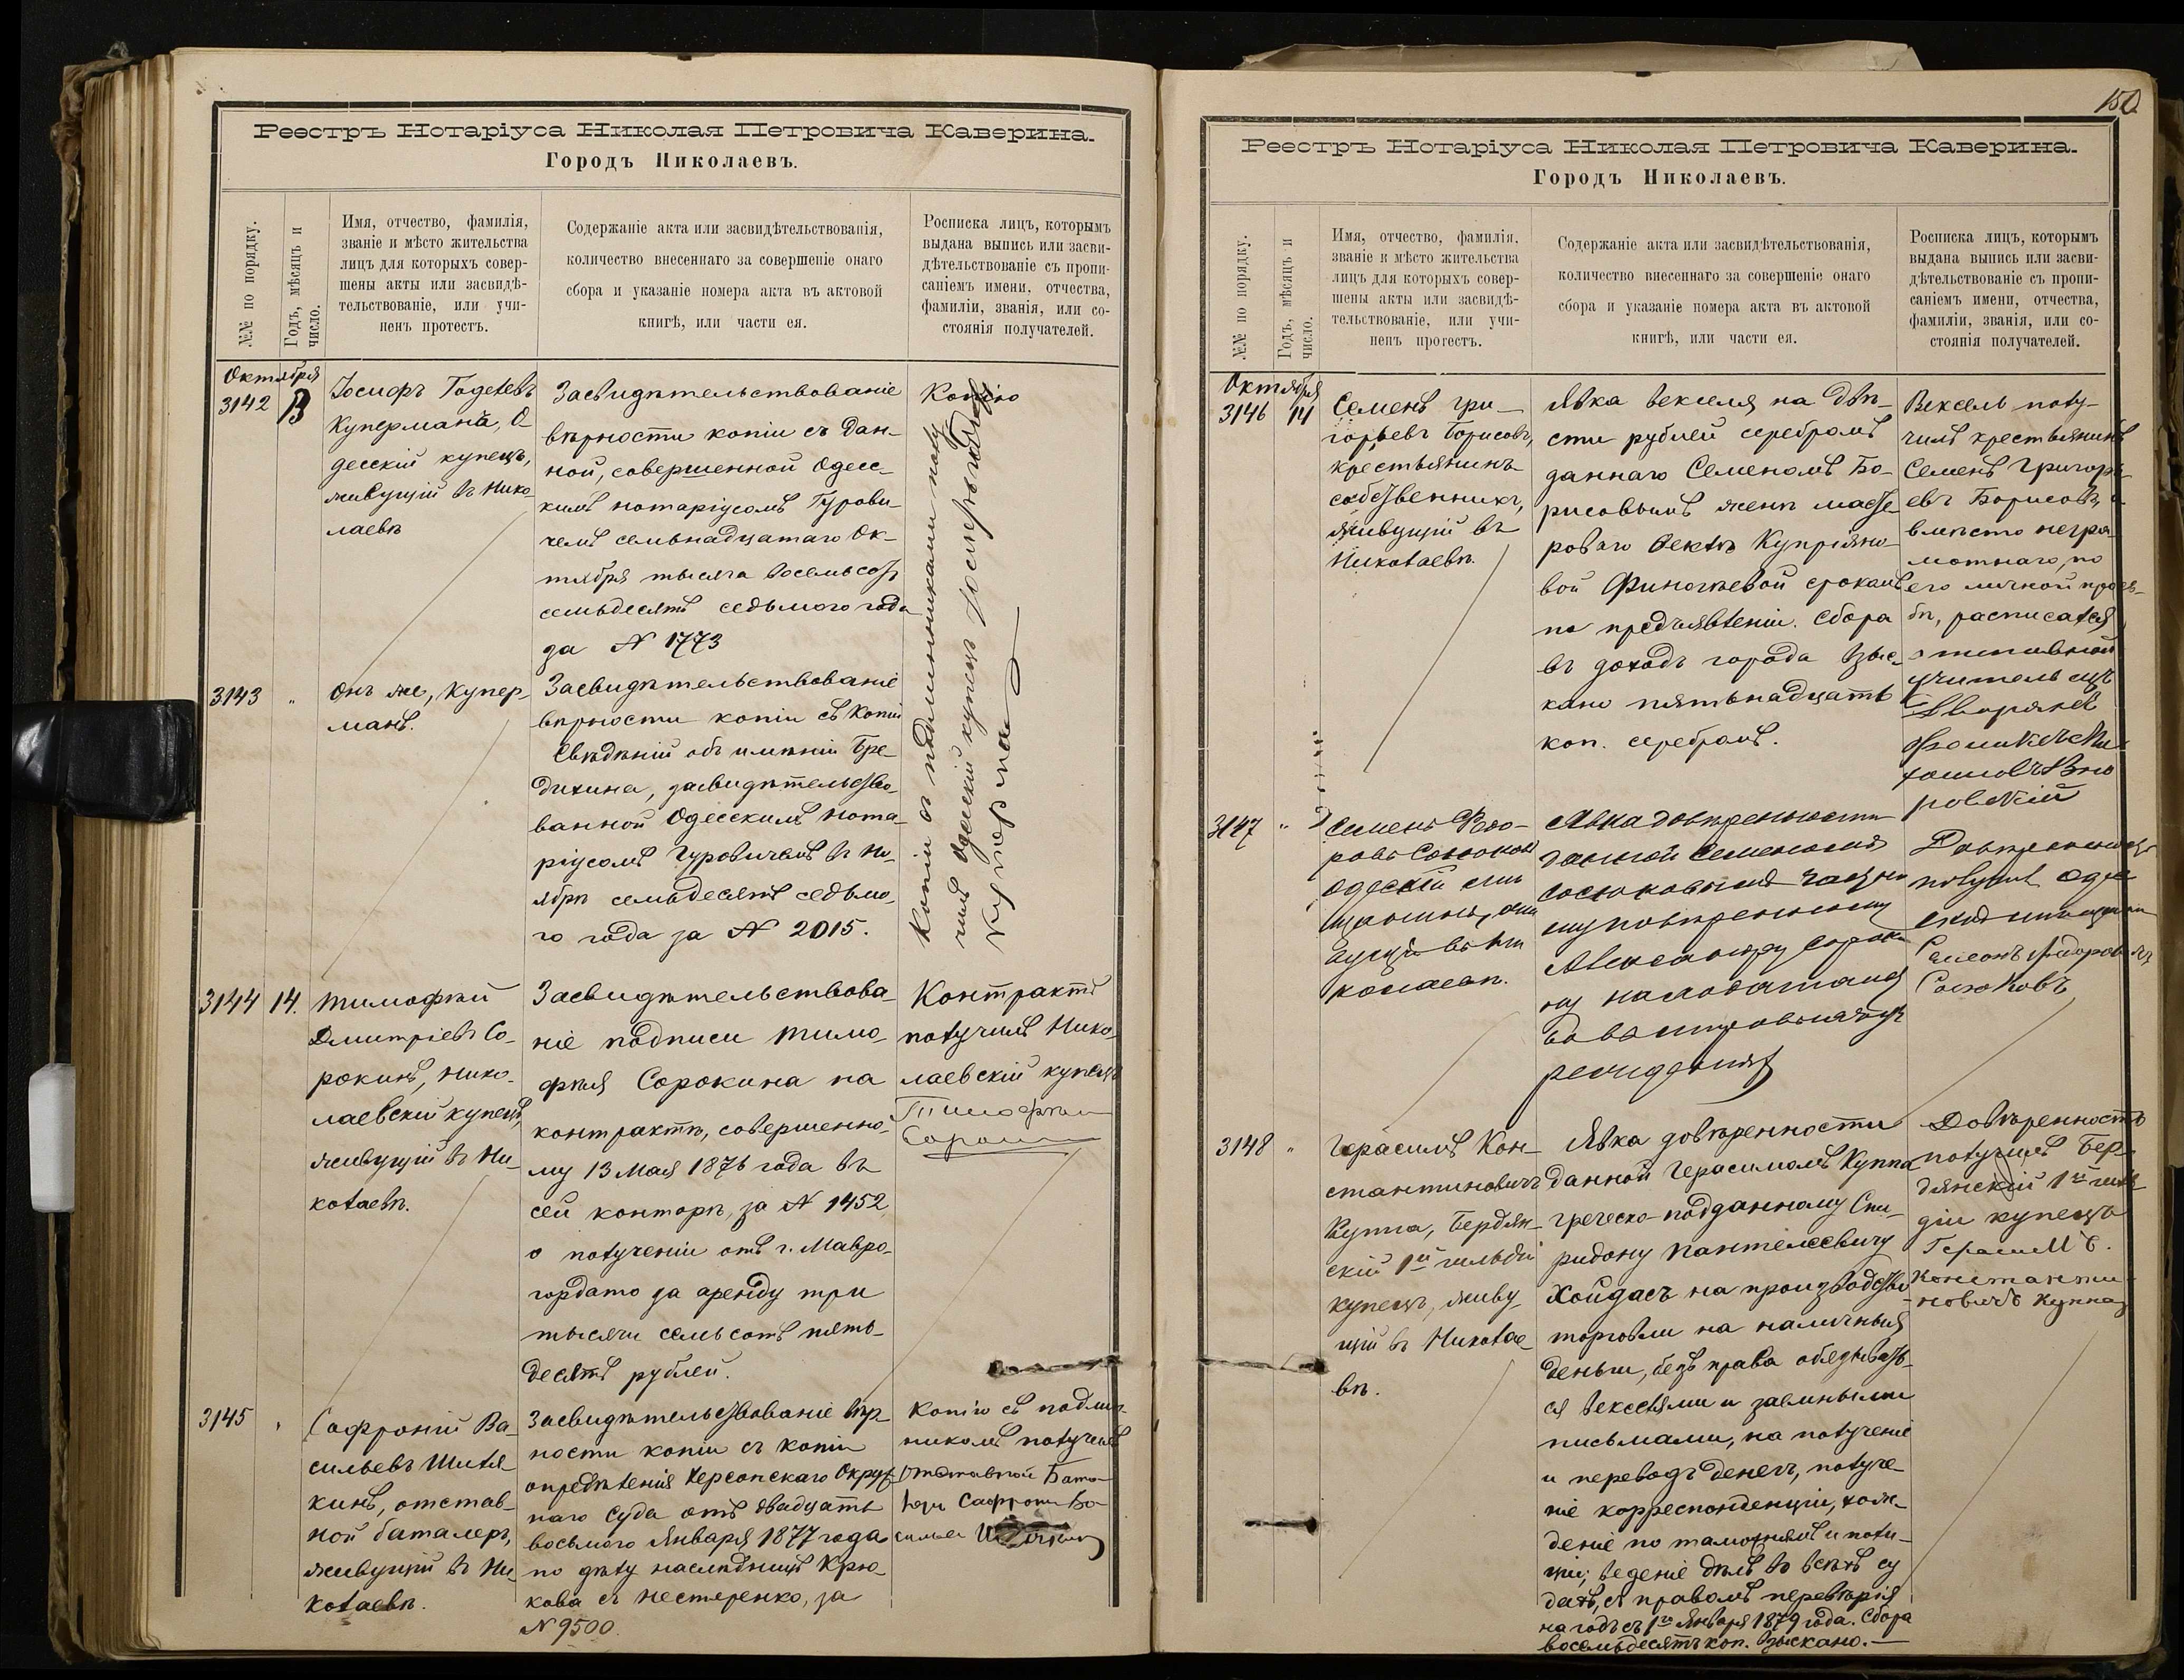 Реестръ Нотаріуса Николая Петровича Каверина.
Городъ Николаевъ.
№№ по порядку.
Годъ, мѣсяцъ и
число.
Имя, отчество, фамилія,
званіе и мѣсто жительства
лицъ для которыхъ совер-
шены акты или засвидѣ-
тельствованіе, или учи-
ненъ протестъ.
Содержаніе акта или засвидѣтельствованія,
количество внесеннаго за совершеніе онаго
сбора и указаніе номера акта въ актовой
книгѣ, или части ея.
Росписка лицъ, которымъ
выдана выпись или засви-
дѣтельствованіе съ пропи-
саніемъ имени, отчества,
фамиліи, званія, или со-
стоянія получателей.
Октября
3142
13
Іосифъ
Купермана, О-
десскій купецъ,
живущій въ Нико-
лаевѣ
Засвидѣтельствованіе
вѣрности копіи съ дан-
ной, совершенной Одесс-
кимъ нотаріусомъ Гурови-
чемъ семьнадцатаго Ок-
тября тысяча восемьсотъ
семьдесятъ седьмого года
за № 1773
Копію
Копіи съ подлинниками полу-
чилъ Одесскій купецъ Іосифъ
Куперманъ
3143
"
Онъ же, Купер-
манъ.
Засвидѣтельствованіе
вѣрности копіи съ копіи
Свѣдѣній объ имѣніи Бре-
дихина, засвидѣтельство-
ванной Одесскимъ Нота-
ріусомъ Гуровичемъ въ Но-
ябрѣ семьдесятъ седьмо-
го года за № 2015.
3144
14.
Тимофѣй
Дмитріевъ Со-
рокинъ, Нико-
лаевскій купецъ,
живущій въ Ни-
колаевѣ.
Засвидѣтельствова-
ніе подписи Тимо-
фѣя Сорокина на
контрактѣ, совершенно-
му 13 Мая 1876 года въ
сей конторѣ, за № 1452
о полученіи отъ г. Мавро-
гордато за аренду три
тысячи семьсотъ пять-
десятъ рублей.
Контрактъ
получилъ Нико-
лаевскій купецъ
Тимофѣй
Сорокинъ
3145
"
Сафроній Ва-
сильевъ Шиля-
кинъ, отстав-
ной баталеръ,
живущій въ Ни-
колаевѣ.
Засвидѣтельствованіе вѣр-
ности копіи съ копіи
опредѣленія Херсонскаго Окруж-
наго Суда отъ двадцать
восьмого Января 1877 года
по дѣлу наслѣдницъ Крю-
кова съ Нестеренко, за
№ 9500.
Копію съ подлин-
никомъ получилъ
Отставной Бата-
леръ Сафрони Ва-
сильев
Реестръ Нотаріуса Николая Петровича Каверина.
Городъ Николаевъ.
150
№№ по порядку.
Годъ, мѣсяцъ и
число.
Имя, отчество, фамилія,
званіе и мѣсто жительства
лицъ для которыхъ совер-
шены акты или засвидѣ-
тельствованіе, или учи-
ненъ протестъ.
Содержаніе акта или засвидѣтельствованія,
количество внесеннаго за совершеніе онаго
сбора и указаніе номера акта въ актовой
книгѣ, или части ея.
Росписка лицъ, которымъ
выдана выпись или засви-
дѣтельствованіе съ пропи-
саніемъ имени, отчества,
фамиліи, званія, или со-
стоянія получателей.
Октября
3146
14
Семенъ Гри-
горьевъ Борисовъ,
крестьянинъ
собственникъ,
живущій въ
Николаевѣ.
Явка векселя на двѣ-
сти рублей серебромъ
даннаго Семеномъ Бо-
рисовымъ женѣ масте-
роваго Феклѣ Купріяно-
вой Финогѣевой срокомъ
по предъявленіи. Сбора
въ доходъ города взыс-
кано пятьнадцать
коп. серебромъ.
Вексель полу-
чилъ крестьянинъ
Семенъ Григорь-
евъ Борисовъ, а
вмѣсто негра-
мотнаго, по
его личной прось-
бѣ, расписался
отставной
учитель изъ
Дворянъ
3147
"
Семенъ Федо-
ровъ Сосюковъ
Одесскій мѣ-
щанинъ, жи-
вущій въ Ни-
колаевѣ.
Явка довѣренности
данной Семеномъ
Сосюковымъ частно-
му повѣренному
Александру Сороки-
ну
Довѣренность
получилъ Одес-
скій мѣщанинъ
Семенъ Федоровъ
Сосюковъ
3148
"
Герасимъ Кон-
стантиновичъ
Куппа, Бердян-
скій 1й гильдіи
купецъ, живу-
щій въ Николае-
вѣ.
Явка довѣренности
данной Герасимомъ Куппа
греческо-подданному Спи-
ридону Пантелеевичу
Хойдасъ на производство
торговли на наличныя
деньги, безъ права обязывать-
ся векселями и заемными
письмами, на полученіе
и переводъ денегъ, получе-
ніе корреспонденціи, хож-
деніе по таможнямъ и поли-
ціи; веденіе дѣлъ во всѣхъ су-
дахъ, съ правомъ перевѣрія
на годъ съ 1го Января 1879 года. Сбора
восемьдесятъ коп. взыскано.—
Довѣренность
получилъ Бер-
дянскій 1й гиль-
діи купецъ
Герасимъ.
Константи-
новичъ Куппа